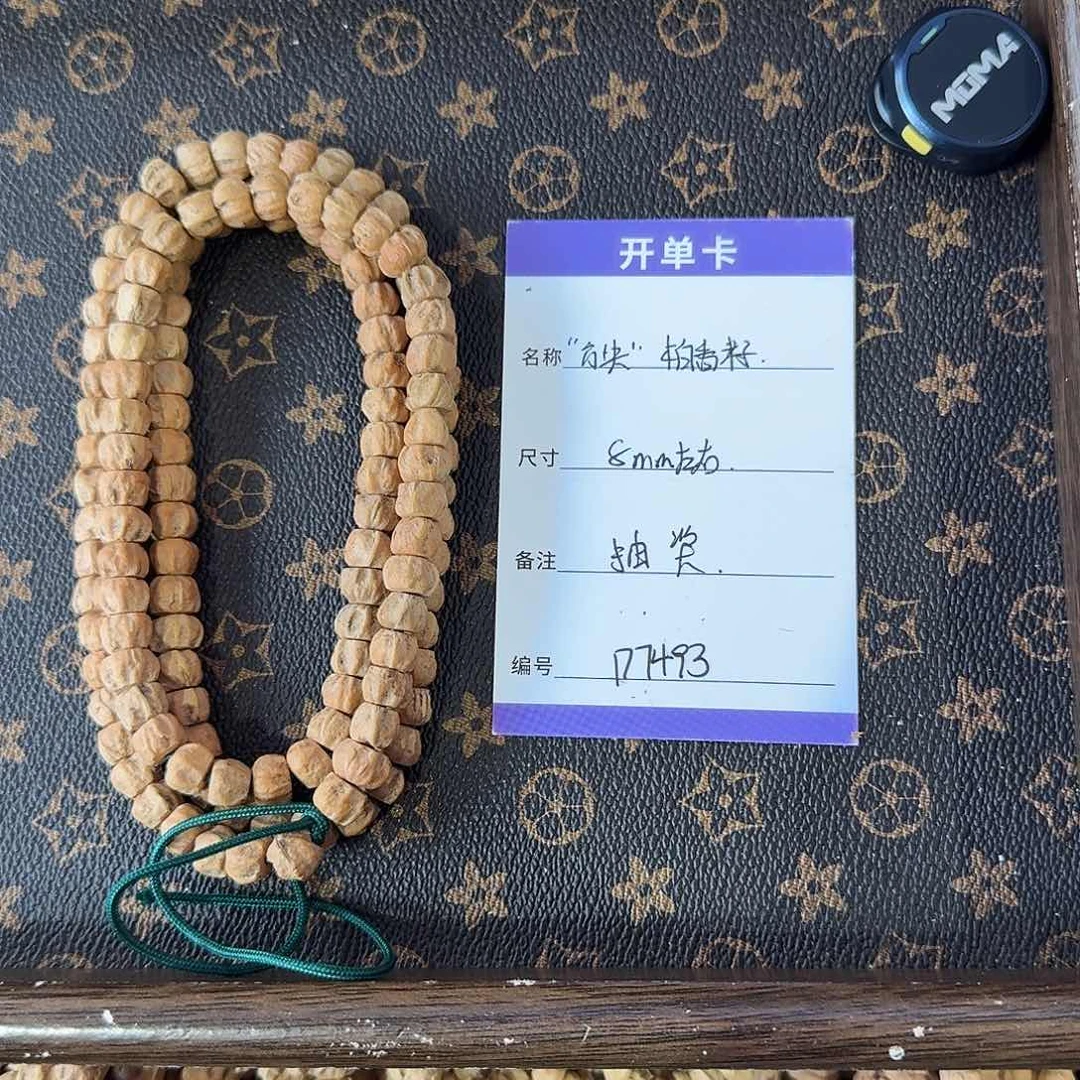 MOMA
开单卡
名称 "百尖" 柏香籽.
尺寸 8mm左右.
备注 抽奖.
编号 177493